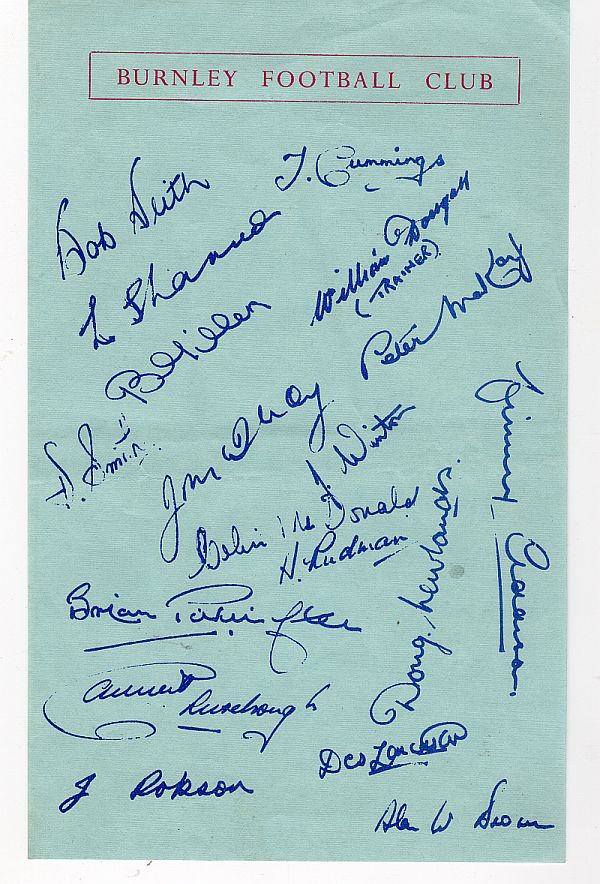 BURNLEY FOOTBALL CLUB
T. Cummings
Bob Seith
William Dougall
(TRAINER)
L Shannon
Peter McKay
B Miller
D. Smith
J. Winton
Colin McDonald
H. Rudman
Jimmy Adamson
Doug. Newlands.
Brian Pilkington
J Robson
Des Thompson
Alan W Brown